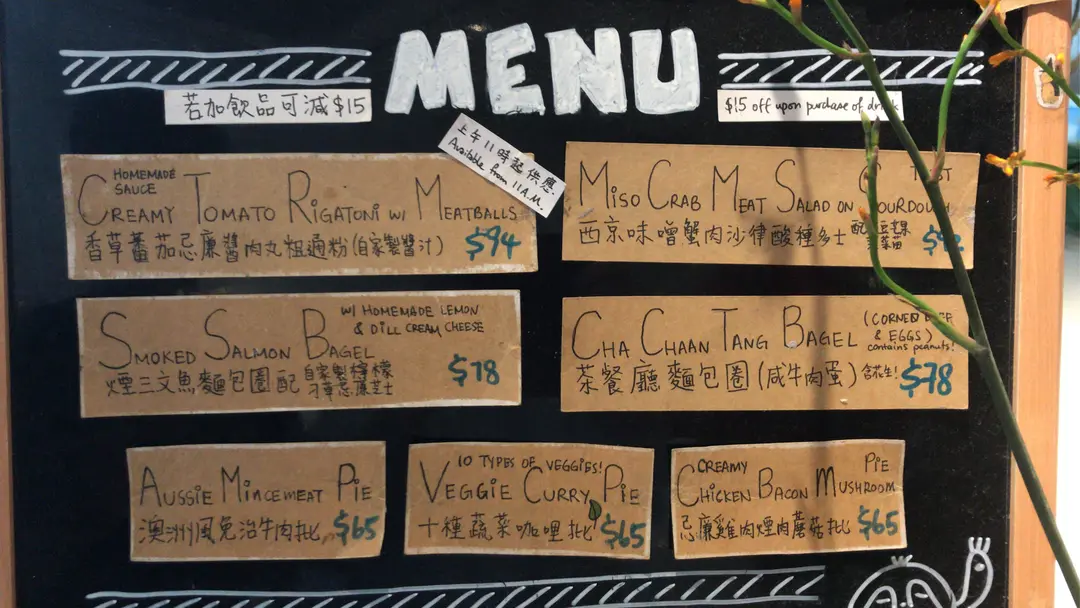 MENU
若加飲品可減$15
$15 off upon purchase of drink
上午11時起供應
Available from 11A.M.
HOMEMADE SAUCE
CREAMY TOMATO RIGATONI W/ MEATBALLS
香草蕃茄忌廉醬肉丸粗通粉(自家製醬汁)
$94
MISO CRAB MEAT SALAD ON SOURDOUGH
西京味噌蟹肉沙律酸種多士
SMOKED SALMON BAGEL
W/ HOMEMADE LEMON
& DILL CREAM CHEESE
煙三文魚麵包圈配
自家製檸檬
刁草忌廉芝士
$78
CHA CHAAN TANG BAGEL
(CORNED BEEF
& EGGS)
contains peanuts!
茶餐廳麵包圈(咸牛肉蛋)含花生!
$78
AUSSIE MINCEMEAT PIE
澳洲風免治牛肉批
$65
10 TYPES OF VEGGIES!
VEGGIE CURRY PIE
十種蔬菜咖哩批
$65
CREAMY
CHICKEN BACON MUSHROOM PIE
忌廉雞肉煙肉蘑菇批
$65